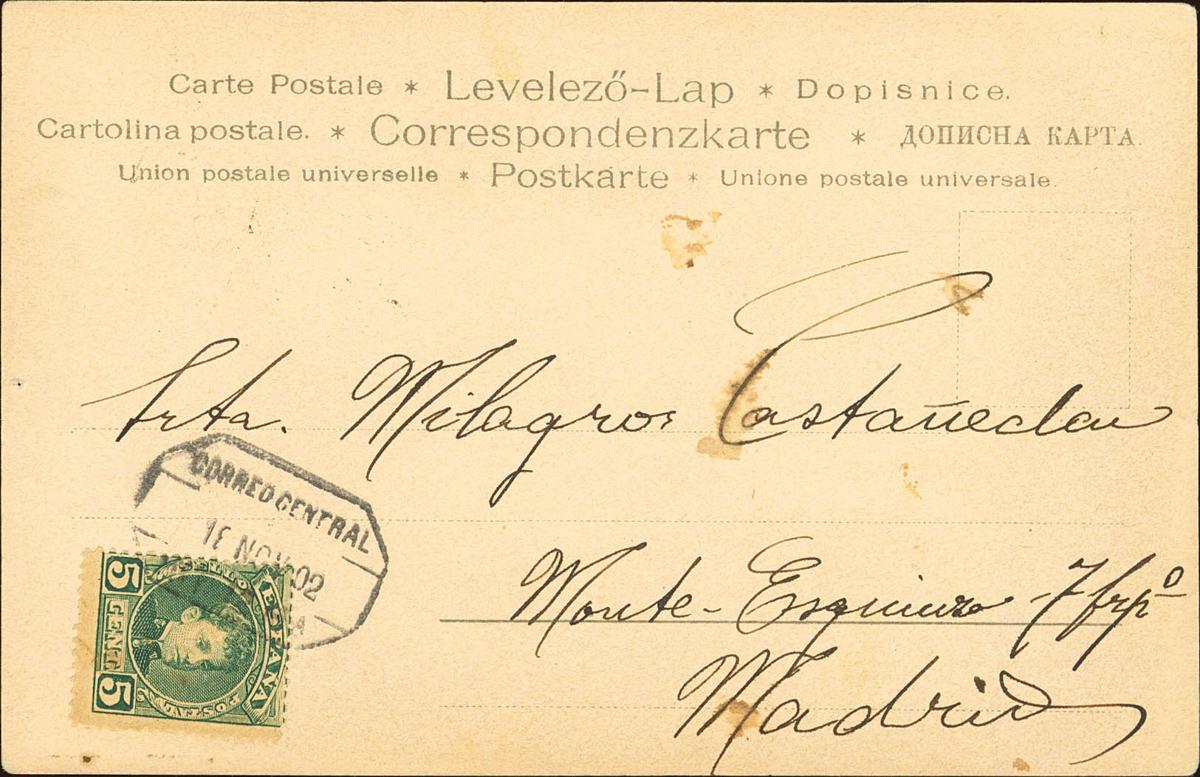 Carte Postale * Levelező-Lap * Dopisnice.
Cartolina postale. * Correspondenzkarte * ДОПИСНА КАРТА.
Union postale universelle * Postkarte * Unione postale universale.
Srta. Milagros Castañeda
Monte-Esquinza 7
Madrid
CORREO CENTRAL
NOV 02
SELLO
ESPAÑA
5 CENT. 5
POSTAL